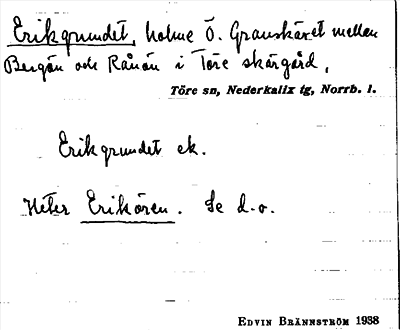 Erikgrundet, holme Ö. Granskäret mellan
Bergön och Rånön i Töre skärgård.
Töre sn, Nederkalix tg, Norrb. l.
Erikgrundet ek.
Heter Erikören. Se d.o.
EDVIN BRÄNNSTRÖM 1938